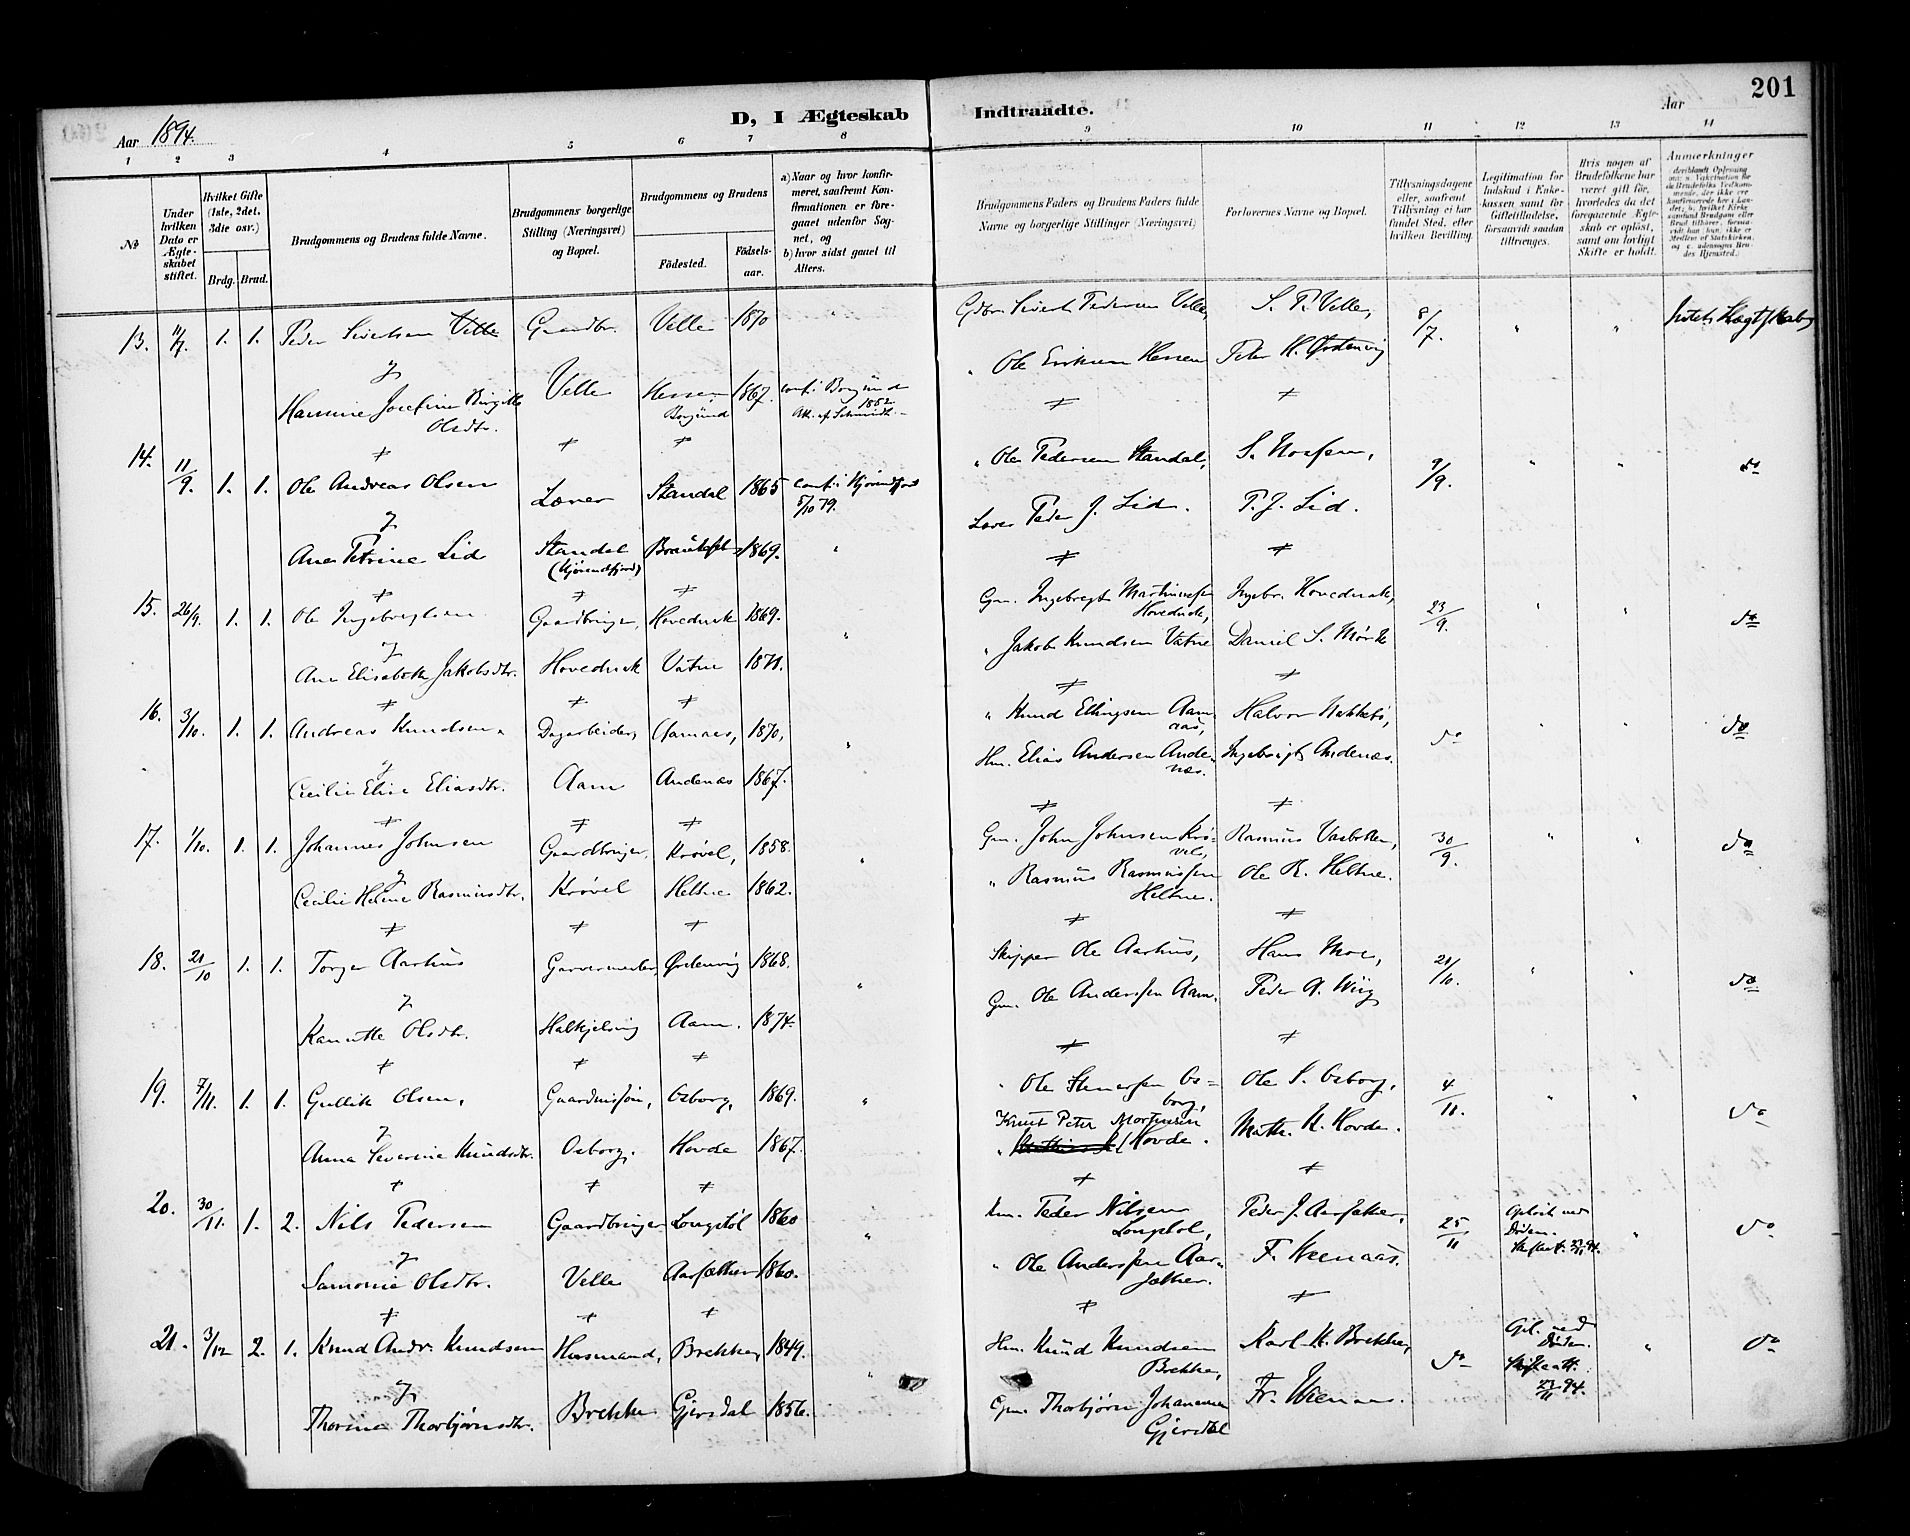 201
D, I Ægteskab Indtraadte.
Aar 1894.
Aar
1 2 3 4 5 6 7 8 9 10 11 12 13 14
No
Under hvilken Dato er Ægteskabet stiftet.
Hvilket Gifte (1ste, 2det, 3die osv.)
Brdg. Brud.
Brudgommens og Brudens fulde Navne.
Brudgommens borgerlige Stilling (Næringsvei) og Bopæl.
Brudgommens og Brudens
Födested.
Födsels-aar.
a) Naar og hvor konfirmeret, saafremt Konfirmationen er foregaaet udenfor Sognet, og
b) hvor sidst gaaet til Alters.
Brudgommens Faders og Brudens Faders fulde Navne og borgerlige Stillinger (Næringsvei)
Forlovernes Navne og Bopæl.
Tillysningsdagene eller, saafremt Tillysning ei har fundet Sted, efter hvilken Bevilling.
Legitimation for Indskud i Enkekassen samt for Giftetilladelse, forsaavidt saadan tiltrænges.
Hvis nogen af Brudefolkene har været gift för, hvorledes da det foregaaende Ægteskab er oplöst, samt om lovligt Skifte er holdt.
Anmærkninger
13. 11/7. 1. 1. Peder Sivertsen Velle Gaardbr. Velle 1870 " Gdbr. Sivert Pedersen Velle, S. P. Velle, 8/7. " "
&
Hansine Josefine Birgitte Olsdtr. Velle Hessen Borgund 1867. conf. i Borgund 1882 " Ole Eriksen Hessen Peter K. Ørstenvig
14. 11/9. 1. 1. Ole Andreas Olsen Løner Standal 1865 conf. i Hjørundfjord 5/10 79. " Ole Pedersen Standal, S. Nossen, 9/9. " " do
&
Ane Petrine Lid Standal (Hjørundfjord) 1869. " Peder J. Lid. P. J. Lid.
15. 26/9. 1. 1. Ole Ingebrigtsen Gaardbruger, Hovedvik 1869. " Gm. Ingebrigt Martinussen Ingebr. 23/9. " " do
&
Ane Elisabeth Jakobsdtr. Vatne 1871. " Jakob Knudsen Vatne Daniel S. Mørk
16. 3/10. 1. 1. Andreas Knudsen. Dagarbeider, Aamnes, 1870, " " Knud Ellingsen Aam Halvor do " " do
&
Cecilie Elise Eliasdtr. Aam Andenæs 1867. Hm. Elias Andersen Andenæs. Ingebrigt Andenæs.
17. 1/10. 1. 1. Johannes Johnsen Gaardbruger, Krøvel, 1858. " Gm. John Johnsen Krøvel, Rasmus Vasbotten, 30/9. " " do
&
Cecilie Helene Rasmusdtr. Krøvel Heltne 1862. " Rasmus Rasmussen Heltne. Ole R. Heltne.
18. 21/10 1. 1. Torger Aarhus Garvermester, Ørstenvig 1868. " Skipper Ole Aarhus, Hans Moe, 21/10. " " do
&
Kanutte Olsdtr. Halkjelsvig Aam. 1874. Gm. Ole Anderssen Aam. Peder A. Wiig
19. 7/11. 1. 1. Gullik Olsen, Gaardmand, Osborg, 1869. " " Ole Stenersen Osborg, Ole S. Osborg, 4/11. " " do
&
Anna Severine Knudsdtr. Osborg. Hovde 1867. Knut Peter Mortensen Hovde. Math. K. Hovde.
20. 30/11. 1. 2. Nils Pedersen Gaardbruger Longstøl 1860 " Hm. Peder Nilsen Longstøl, Peder J. Aarsæther, 25/11 Opløst ved Døden. " do
&
Samonie Olsdtr. Velle Aarsæther 1860. " Ole Anderssen Aarsæther. F. Weenaas.
21. 3/12 2. 1. Knud Andr. Knudsen Huusmand, Brekke, 1849. " Hm. Knud Knudsen Brekke, Karl K. Brekke, do Opl. ved Døden. Skifteatt. 27/11 94. " do
&
Thorine Thorbjørnsdtr. Brekke Gjersdal 1856. Gm. Thorbjørn Johannesen Gjersdal Fr. Weenaas.